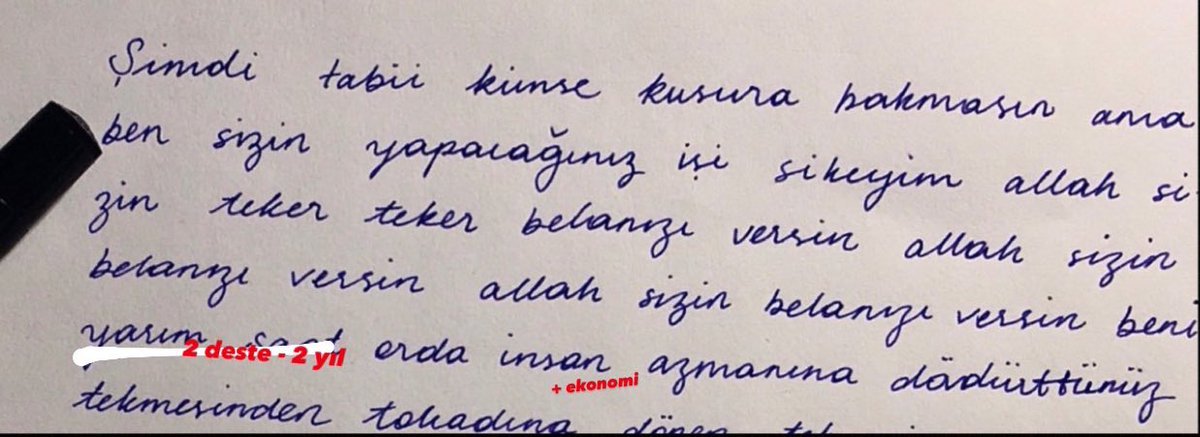 Şimdi tabii kimse kusura bakmasın ama
ben sizin yapacağınız işi sikeyim allah si
zin teker teker belanızı versin allah sizin
belanızı versin allah sizin belanızı versin beni
yarım saat orda insan azmanına dödürttünüz
2 deste - 2 yıl
+ ekonomi
tekmesinden tokadına dönen